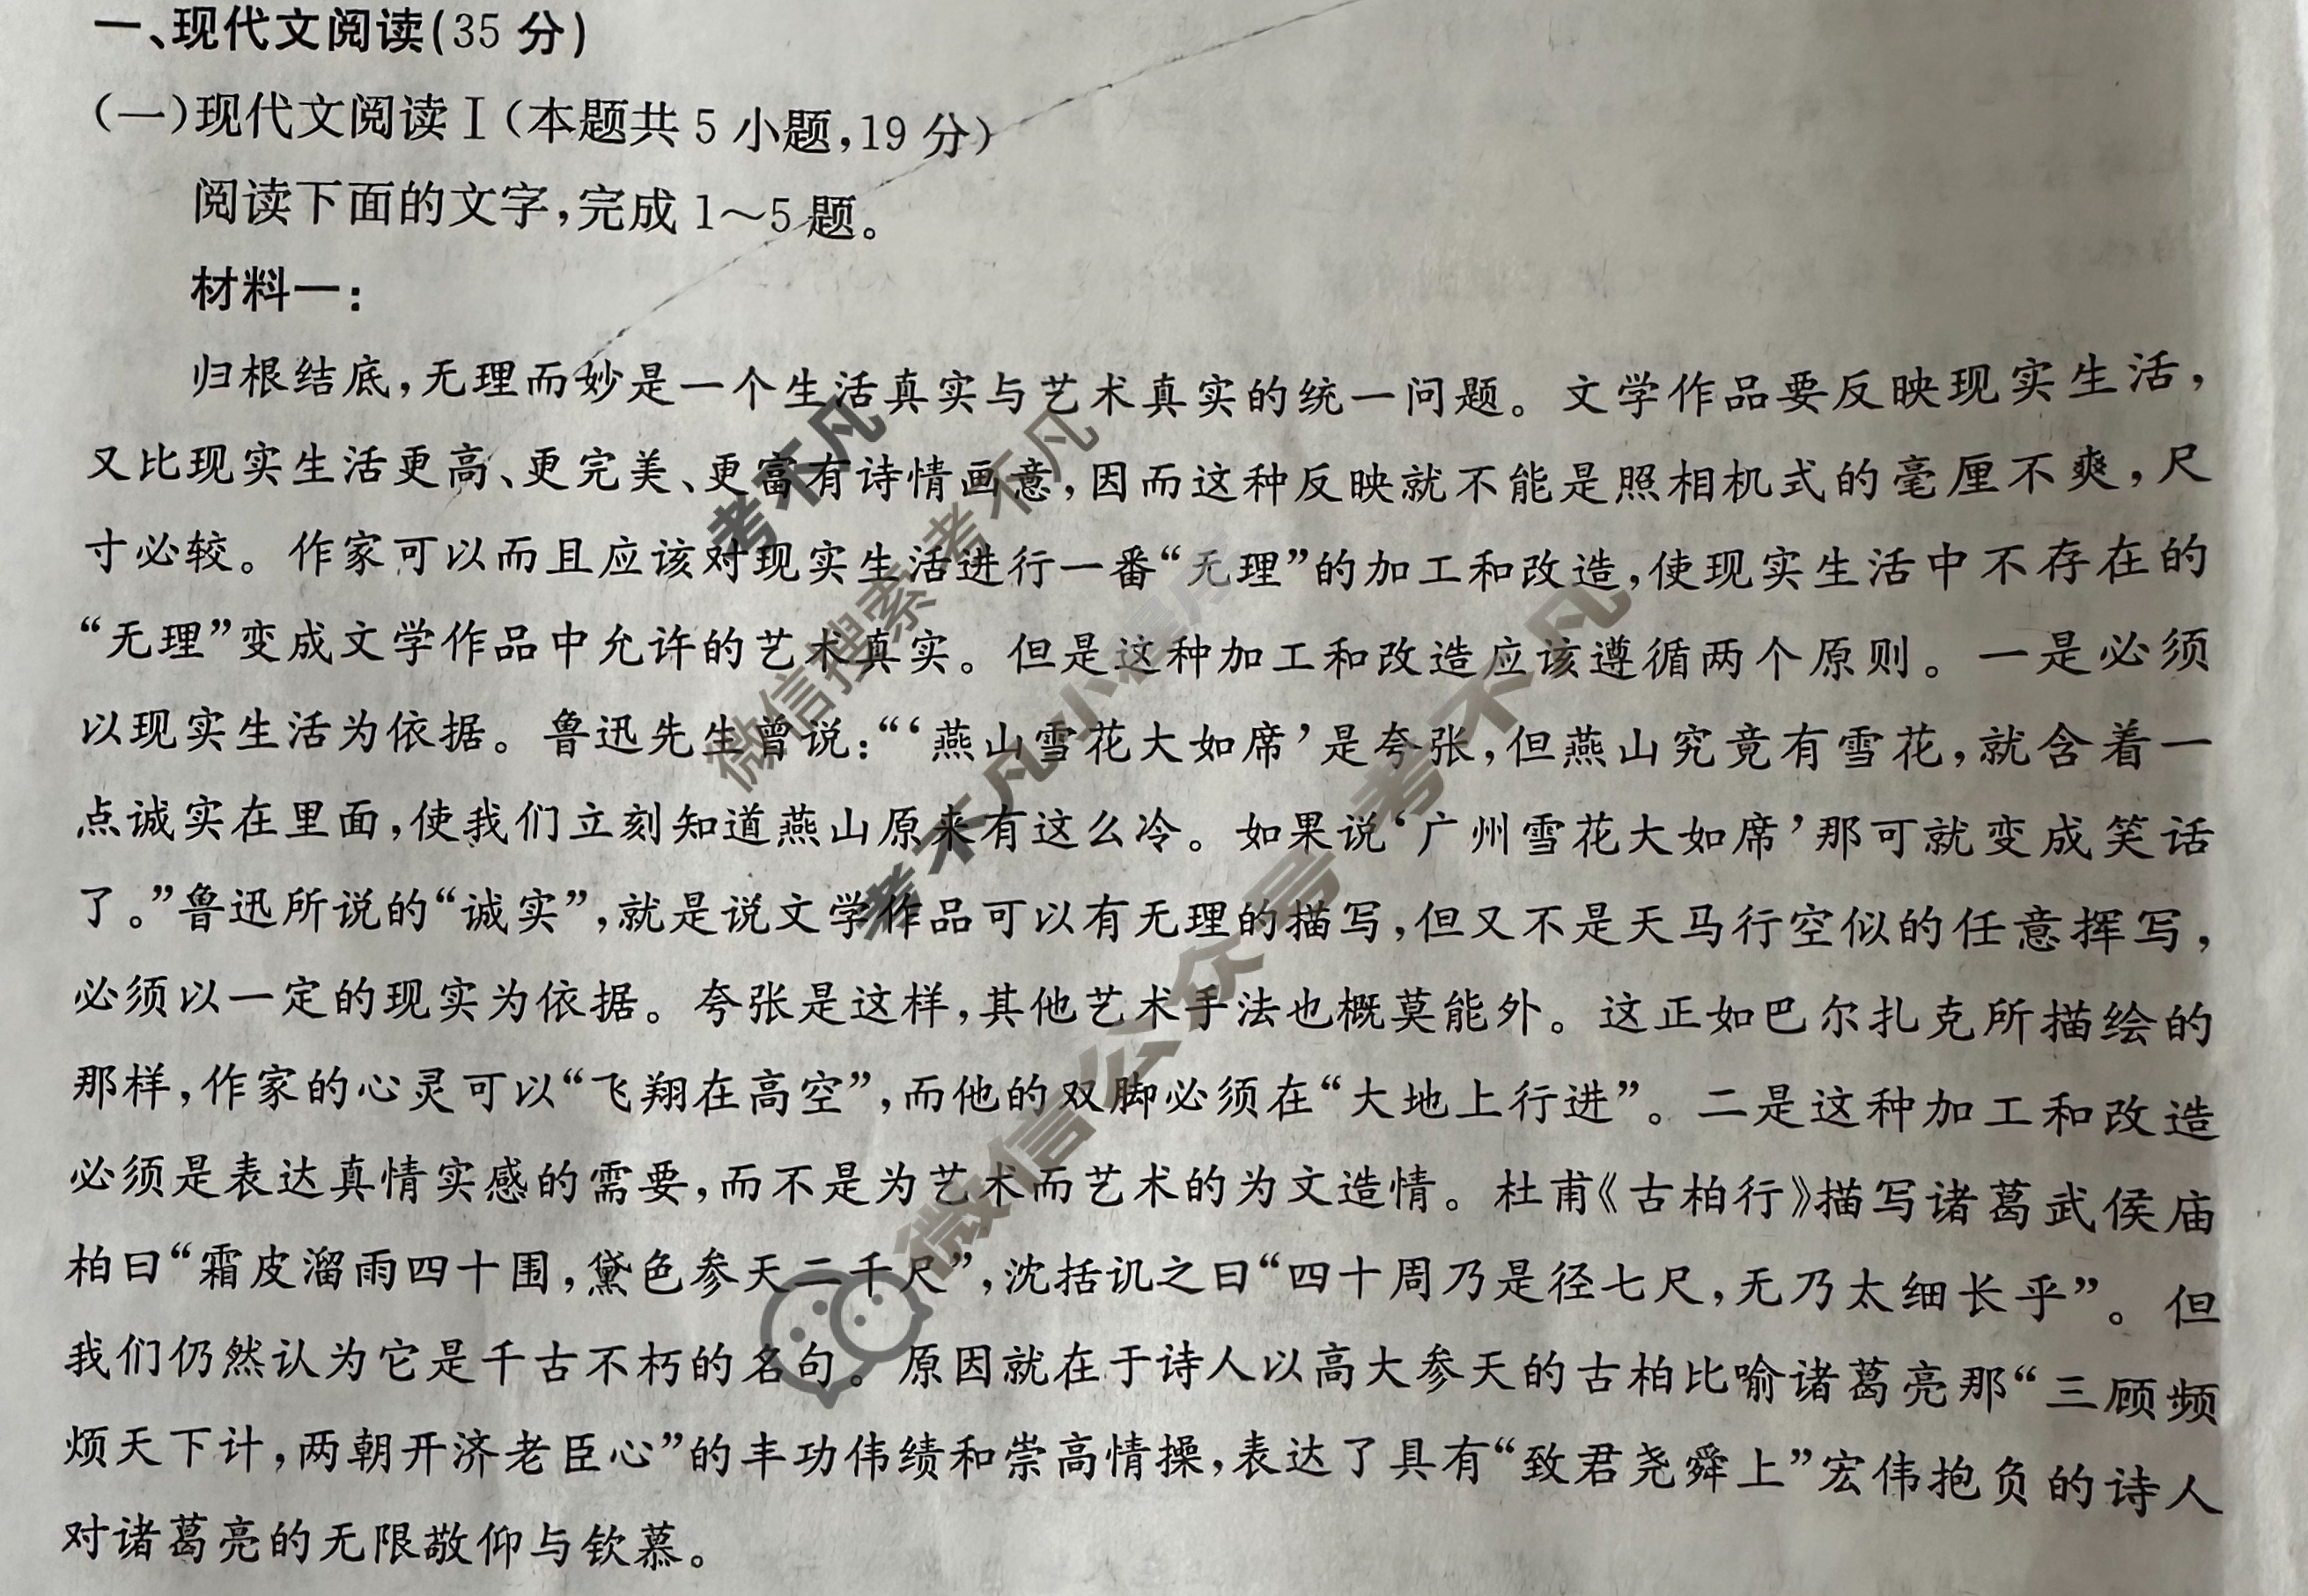 一、现代文阅读(35 分)
(一)现代文阅读Ⅰ(本题共 5 小题,19 分)
阅读下面的文字,完成 1～5 题。
材料一:
归根结底,无理而妙是一个生活真实与艺术真实的统一问题。文学作品要反映现实生活,
又比现实生活更高、更完美、更富有诗情画意,因而这种反映就不能是照相机式的毫厘不爽,尺
寸必较。作家可以而且应该对现实生活进行一番“无理”的加工和改造,使现实生活中不存在的
“无理”变成文学作品中允许的艺术真实。但是这种加工和改造应该遵循两个原则。一是必须
以现实生活为依据。鲁迅先生曾说:“‘燕山雪花大如席’是夸张,但燕山究竟有雪花,就含着一
点诚实在里面,使我们立刻知道燕山原来有这么冷。如果说‘广州雪花大如席’那可就变成笑话
了。”鲁迅所说的“诚实”,就是说文学作品可以有无理的描写,但又不是天马行空似的任意挥写,
必须以一定的现实为依据。夸张是这样,其他艺术手法也概莫能外。这正如巴尔扎克所描绘的
那样,作家的心灵可以“飞翔在高空”,而他的双脚必须在“大地上行进”。二是这种加工和改造
必须是表达真情实感的需要,而不是为艺术而艺术的为文造情。杜甫《古柏行》描写诸葛武侯庙
柏曰“霜皮溜雨四十围,黛色参天二千尺”,沈括讥之曰“四十周乃是径七尺,无乃太细长乎”。但
我们仍然认为它是千古不朽的名句。原因就在于诗人以高大参天的古柏比喻诸葛亮那“三顾频
烦天下计,两朝开济老臣心”的丰功伟绩和崇高情操,表达了具有“致君尧舜上”宏伟抱负的诗人
对诸葛亮的无限敬仰与钦慕。
考不凡
微信搜索考不凡
考不凡小程序
微信公众号考不凡